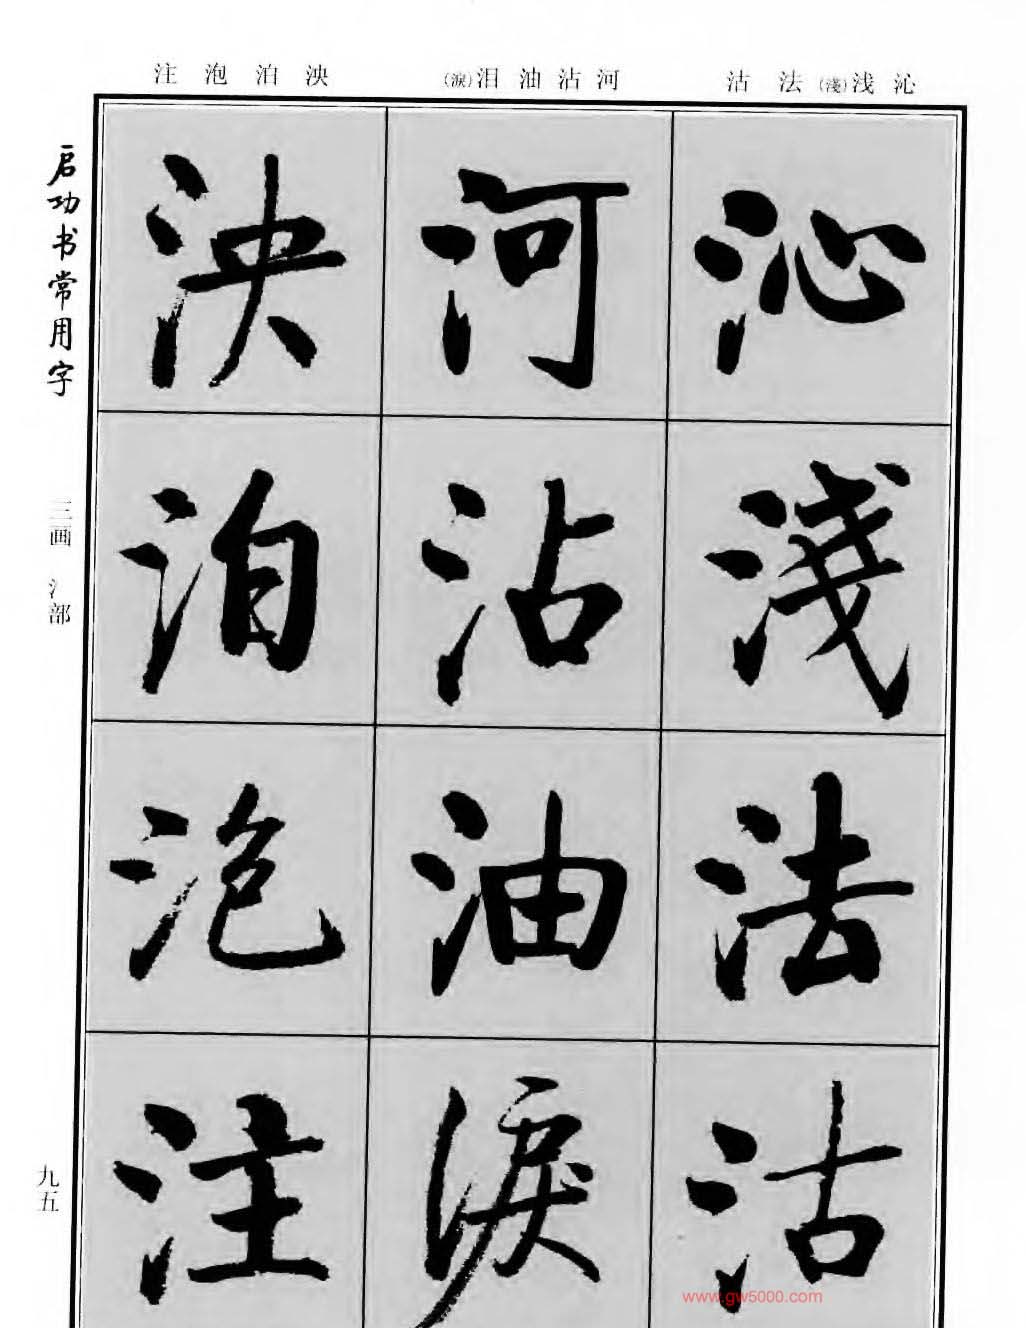 沁浅(淺)法沽
河沾油泪(淚)
泱泊泡注
沁
淺
法
沽
河
沾
油
淚
泱
泊
泡
注
启功书常用字
三画 氵部
九五
www.gw5000.com